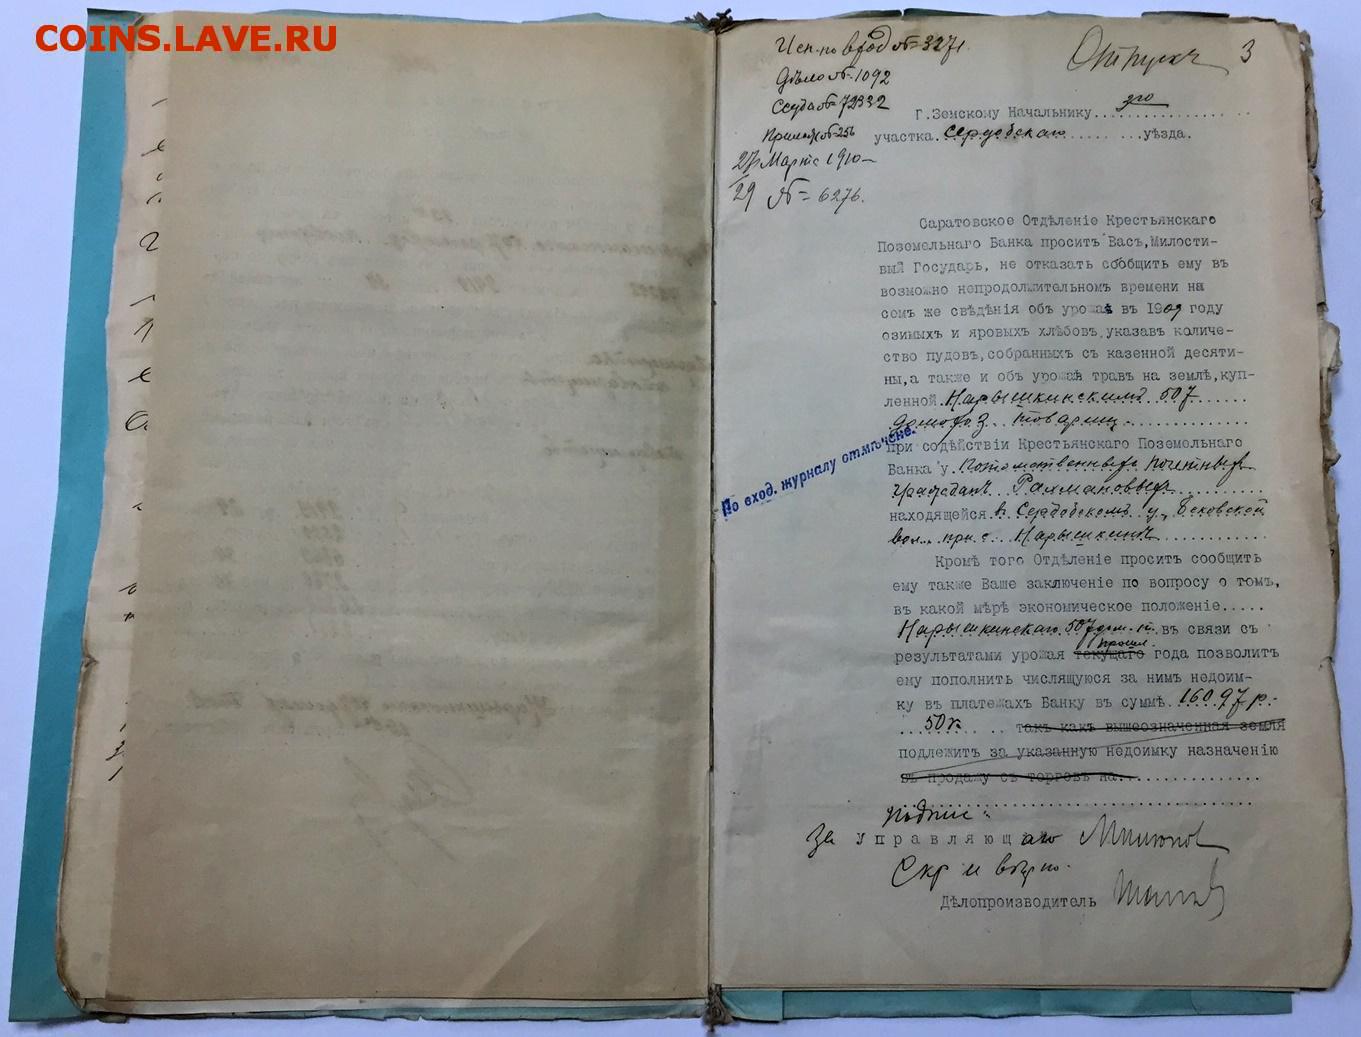 COINS.LAVE.RU
Исп. по вход № 3271
Отпускъ 3
Дѣло № 1092
Ссуда № 72332
№ 256
27 Марта 1910
29 № 6276.
Г. Земскому Начальнику 3го
участка Сердобскаго уѣзда.
Саратовское Отдѣленіе Крестьянскаго
Поземельнаго Банка проситъ Васъ, Милости-
вый Государь, не отказать сообщить ему въ
возможно непродолжительном времени на
семъ же свѣдѣнія объ урожаѣ въ 1909 году
озимыхъ и яровыхъ хлѣбовъ, указавъ количе-
ство пудовъ, собранныхъ съ казенной десяти-
ны, а также и объ урожаѣ травъ на землѣ, куп-
ленной Нарышкинскимъ 507
домохоз. товарищ.
при содѣйствіи Крестьянскаго Поземельнаго
Банка у Потомственныхъ Почетныхъ
Гражданъ Рахмановыхъ
находящейся въ Сердобскомъ у., Бековской
вол. при с. Нарышкинѣ
По вход. журналу отмѣчено.
Кромѣ того Отдѣленіе проситъ сообщить
ему также Ваше заключеніе по вопросу о томъ,
въ какой мѣрѣ экономическое положеніе.....
Нарышкинскаго 507 дом. т. въ связи съ
прошл.
результатами урожая текущаго года позволитъ
ему пополнить числящуюся за нимъ недоим-
ку въ платежахъ Банку въ суммѣ 16097 р.
50 к. такъ какъ вышеозначенная земля
подлежитъ за указанную недоимку назначенію
въ продажу съ торговъ на
подпис:
За Управляющаго
Скр и вѣрно.
Дѣлопроизводитель